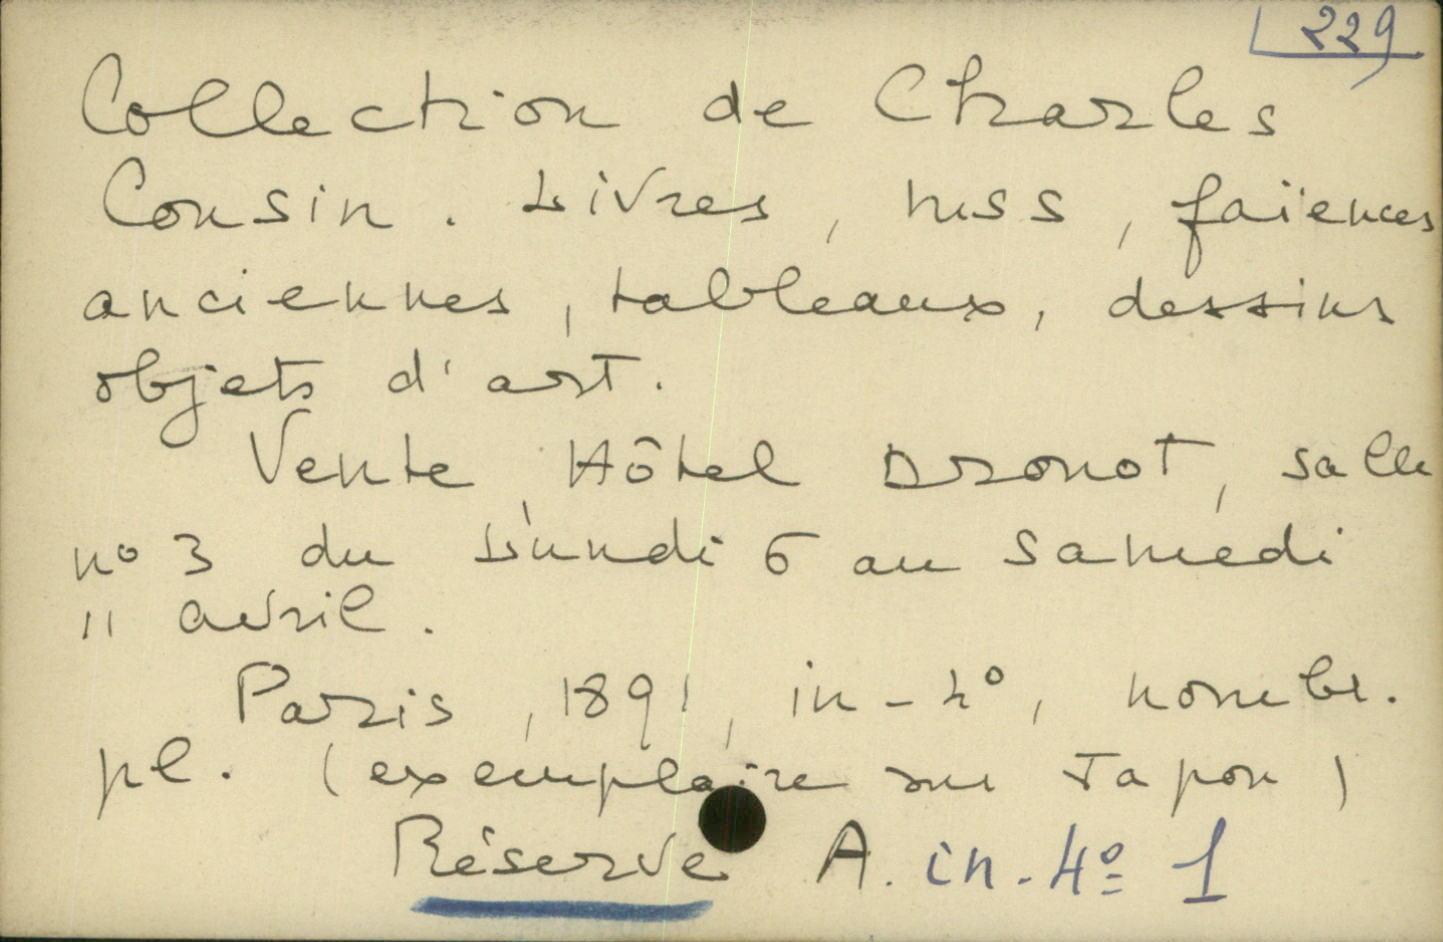 229
Collection de Charles
Cousin. Livres, mss, faïences
anciennes, tableaux, dessins
objets d'art.
Vente, Hôtel Drouot, salle
no 3 du Lundi 6 au Samedi
11 avril.
Paris, 1891, in-4°, nombr.
pl. (exemplaire sur Japon)
Réserve A. in-4º 1